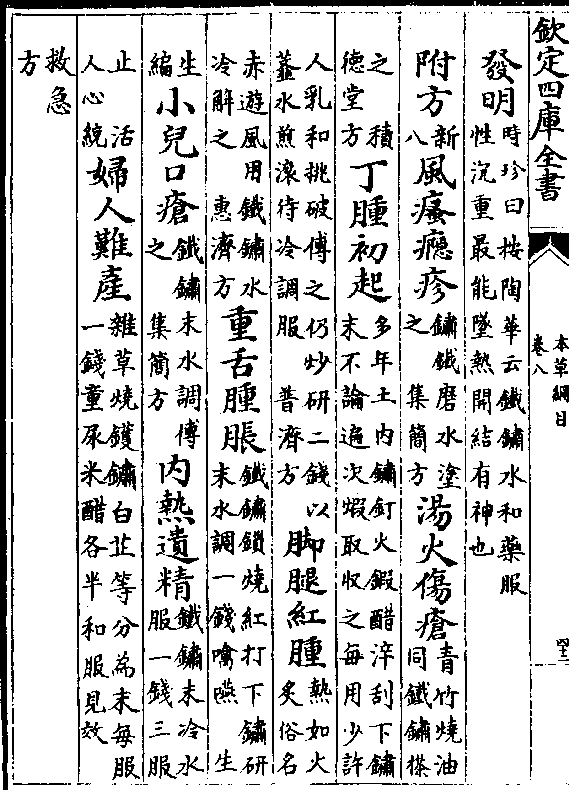 欽定四庫全書
本草綱目
卷八
發明時珍曰按陶華云鐵鏽水和藥服性沉重最能墜熱開結有神也
附方新八風瘙癮疹鏽鐵磨水塗之 集簡方湯火傷瘡青竹燒油同鐵鏽搽
之 積德堂方丁腫初起多年土內鏽釘火鍜醋淬刮下鏽末不論遍次煆取收之每用少許
人乳和挑破傅之仍炒研二錢以虀水煎滾待冷調服 普濟方脚腿紅腫熱如火炙俗名
赤遊風用鐵鏽水冷解之 惠濟方重舌腫脹鐵鏽鎖燒紅打下鏽研末水調一錢噙嚥 生
生編小兒口瘡鐵鏽末水調傅之 集簡方內熱遺精鐵鏽末冷水服一錢三服
止 活人心統婦人難產雜草燒鑊鏽白芷等分為末每服一錢童尿米醋各半和服見效
救急方